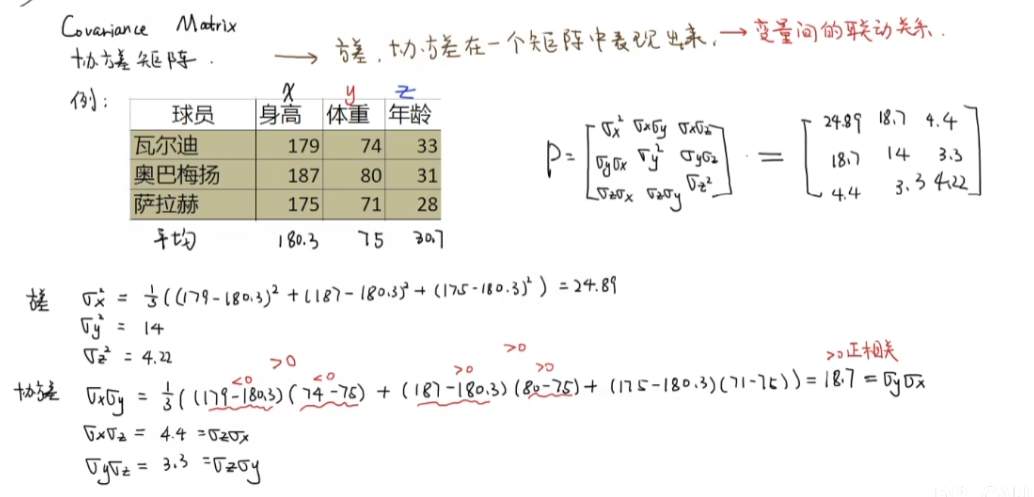 Covariance Matrix
协方差矩阵. → 方差, 协方差在一个矩阵中表现出来. → 变量间的联动关系.
例:
x y z
球员 身高 体重 年龄
瓦尔迪 179 74 33
奥巴梅扬 187 80 31
萨拉赫 175 71 28
平均 180.3 75 30.7
P = [σx² σxσy σxσz
σyσx σy² σyσz
σzσx σzσy σz²] = [24.89 18.7 4.4
18.7 14 3.3
4.4 3.3 4.22]
方差 σx² = 1/3((179-180.3)² + (187-180.3)² + (175-180.3)²) = 24.89
σy² = 14
σz² = 4.22
>0 >0
<0 <0 >0 >0 >0正相关
协方差 σxσy = 1/3((179-180.3)(74-75) + (187-180.3)(80-75) + (175-180.3)(71-75)) = 18.7 = σyσx
σxσz = 4.4 = σzσx
σyσz = 3.3 = σzσy